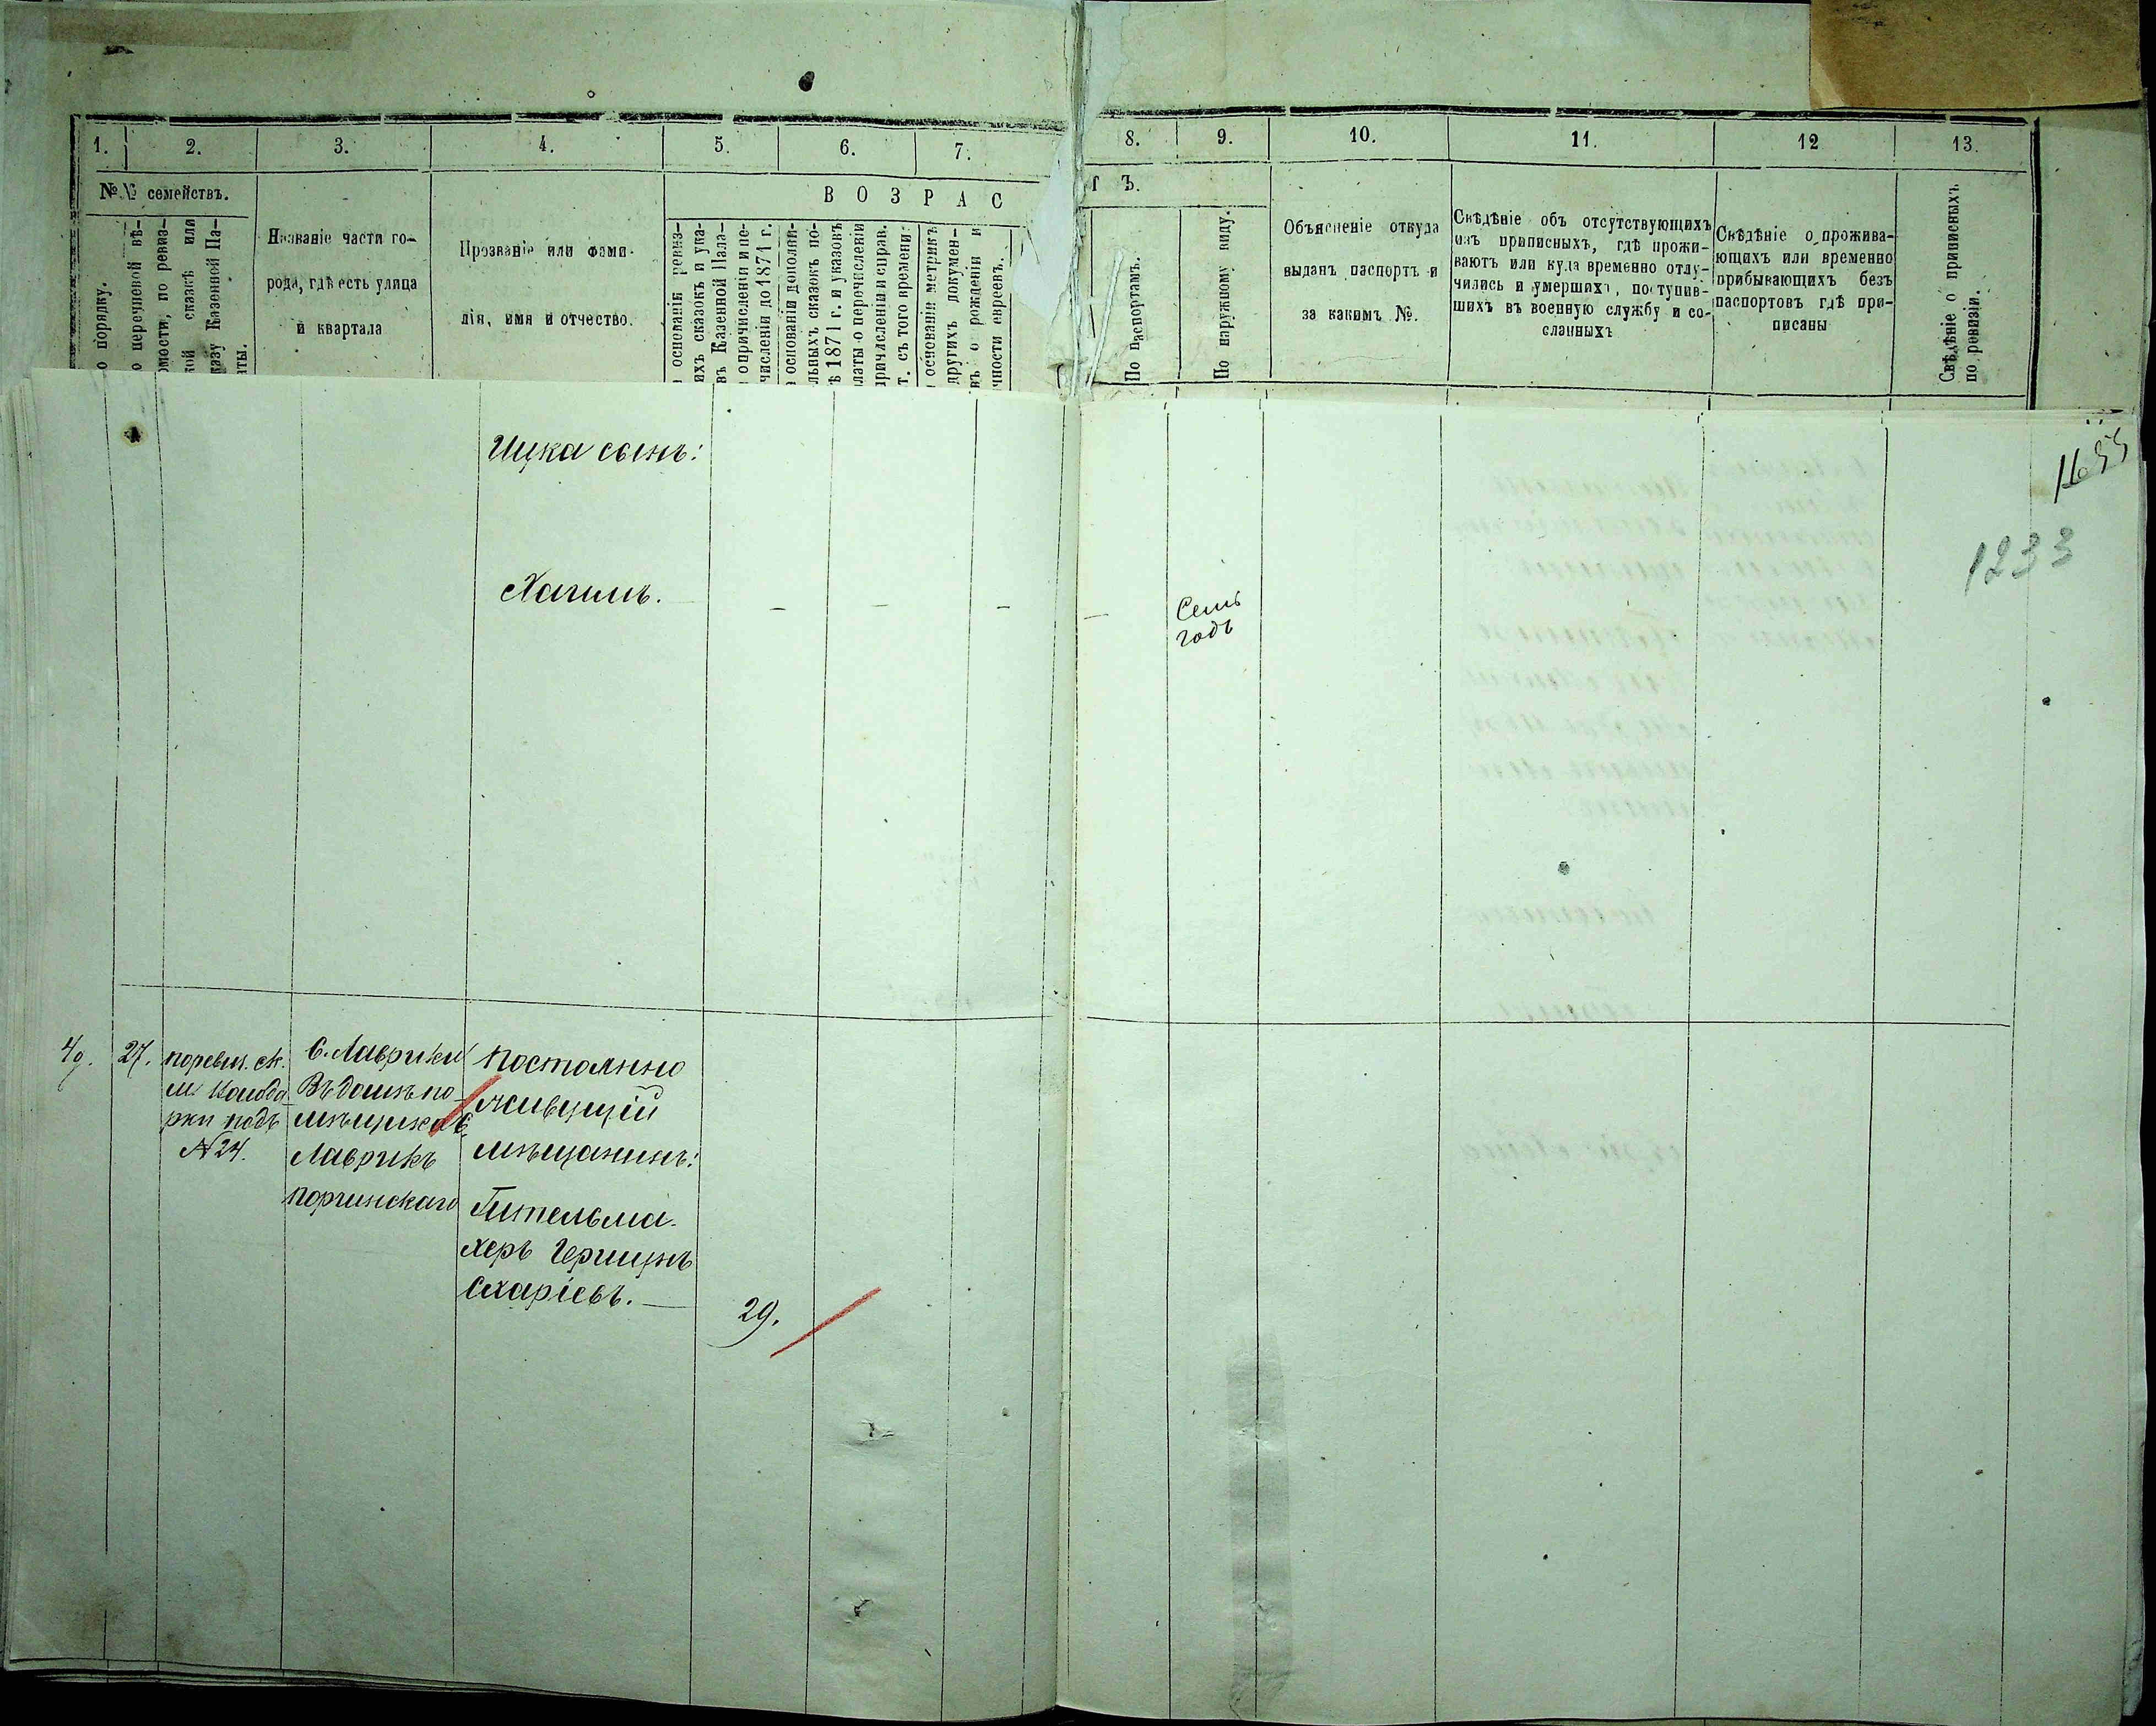 1. 2. 3. 4. 5. 6. 7. 8. 9. 10. 11. 12 13.
№ № семействъ.
В О З Р А С Т Ъ.
о порядку.
о перечневой вѣ-
омости, по ревиз-
ной сказкѣ или
казу Казенной Па-
аты.
Названіе части го-
рода, гдѣ есть улица
и квартала
Прозваніе или фами-
лія, имя и отчество.
основаніи ревиз-
ихъ сказокъ и ука-
въ Казенной Пала-
о причисленіи и пе-
численіи до 1871 г.
основаніи дополни-
льныхъ сказокъ по-
ѣ 1871 г. и указовъ
латы о перечисленіи
причисленіи и справ.
т. съ того времени.
основаніи метрикъ
другихъ докумен-
въ о рожденіи и
чности евреевъ.
По паспортамъ.
По наружному виду.
Объясненіе откуда
выданъ паспортъ и
за какимъ №.
Свѣдѣніе объ отсутствующихъ
изъ приписныхъ, гдѣ прожи-
ваютъ или куда временно отлу-
чились и умершихъ, поступив-
шихъ въ военную службу и со-
сланныхъ
Свѣдѣніе о прожива-
ющихъ или временно
прибывающихъ безъ
паспортовъ гдѣ при-
писаны
Свѣдѣніе о приписныхъ
по ревизіи.
Ицка сынъ:
1233
Хаимъ.
Семь
годъ
49. 27.
по ревиз. ск.
м.
подъ
№ 24.
С. Лаврики
Въ домѣ по-
мѣщика
Лаврикъ
Порчинскаго
Постоянно
живущій
мѣщанинъ:
Гительма-
херъ Гершунъ
Схаріевъ.
29.